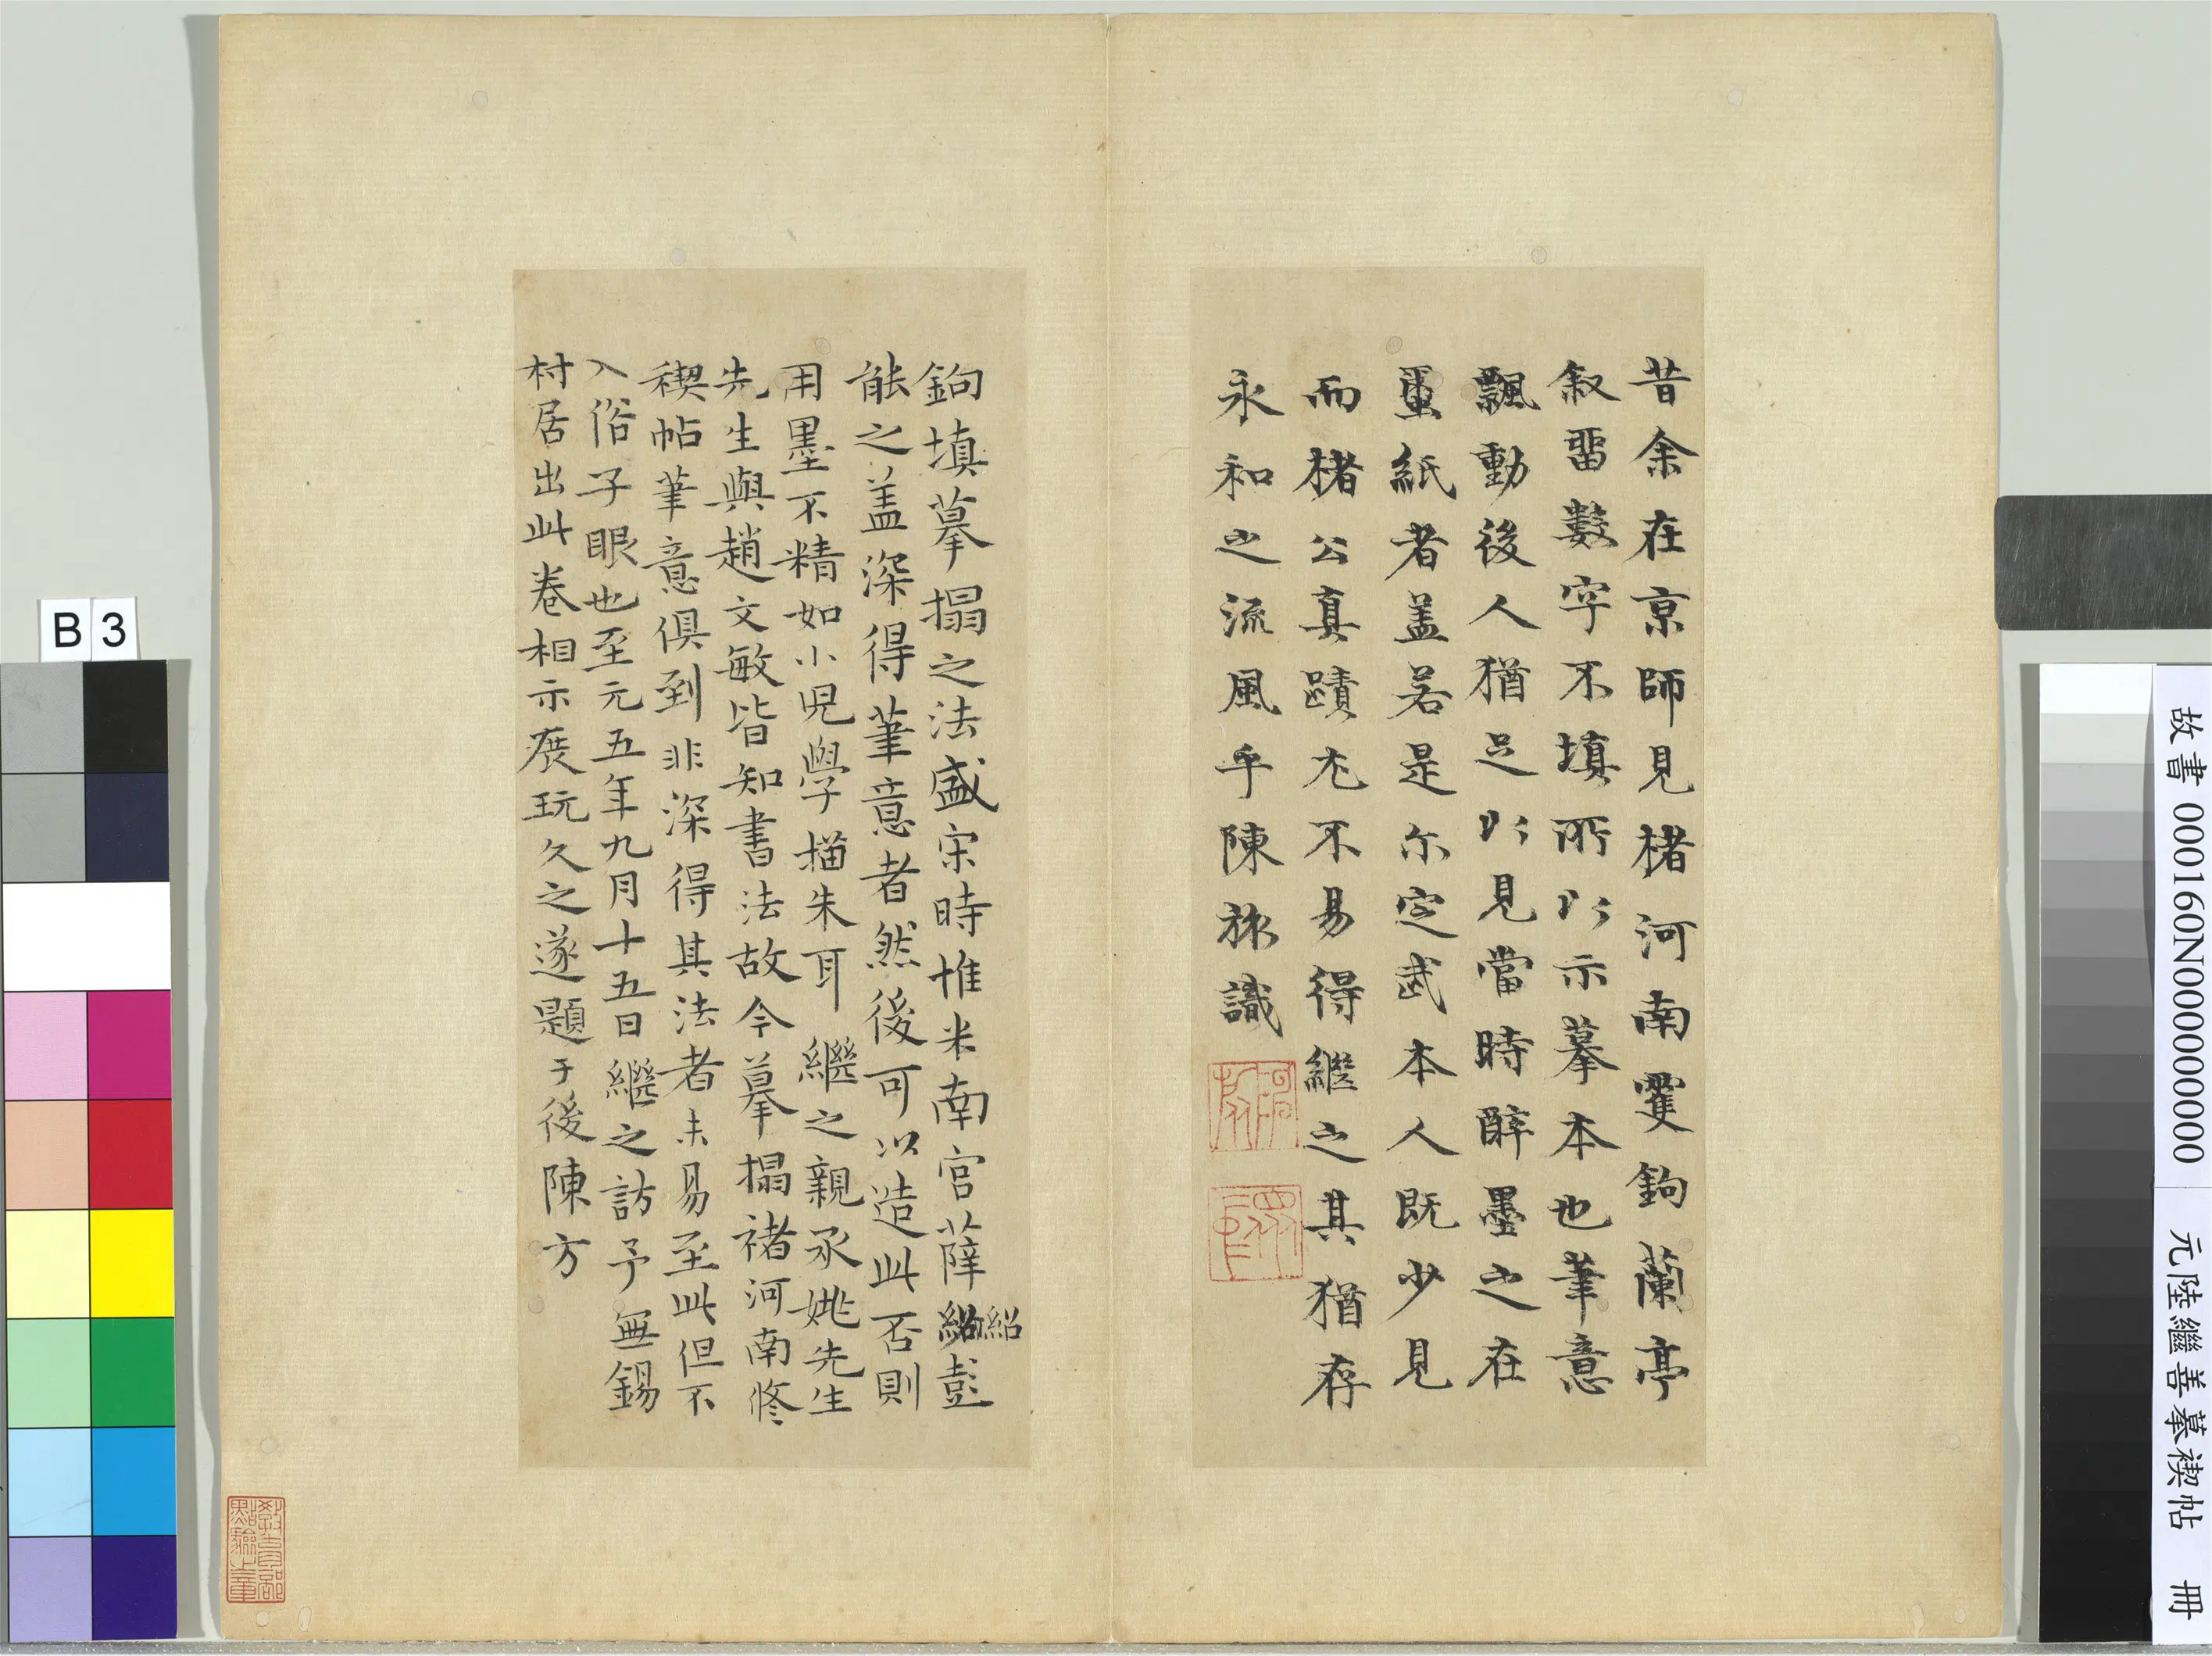 昔余在京師見楮河南雙鉤蘭亭
叙畱數字不填所以示摹本也筆意
飄動後人猶足以見當時醉墨之在
蠒紙者盖若是尓定武本人既少見
而楮公真蹟尤不易得繼之其猶存
永和之流風乎陳旅識
鉤填摹搨之法盛宋時惟米南宫薛紹彭
紹
能之盖深得筆意者然後可以造此否則
用墨不精如小児學描朱耳繼之親承姚先生
先生與趙文敏皆知書法故今摹搨禇河南修
稧帖筆意俱到非深得其法者未易至此但不
入俗子眼也至元五年九月十五日繼之訪予無錫
村居出此卷相示展玩久之遂題于後陳方
教育部
點驗之章
B 3
故書 000160N000000000 元陸繼善摹禊帖 冊